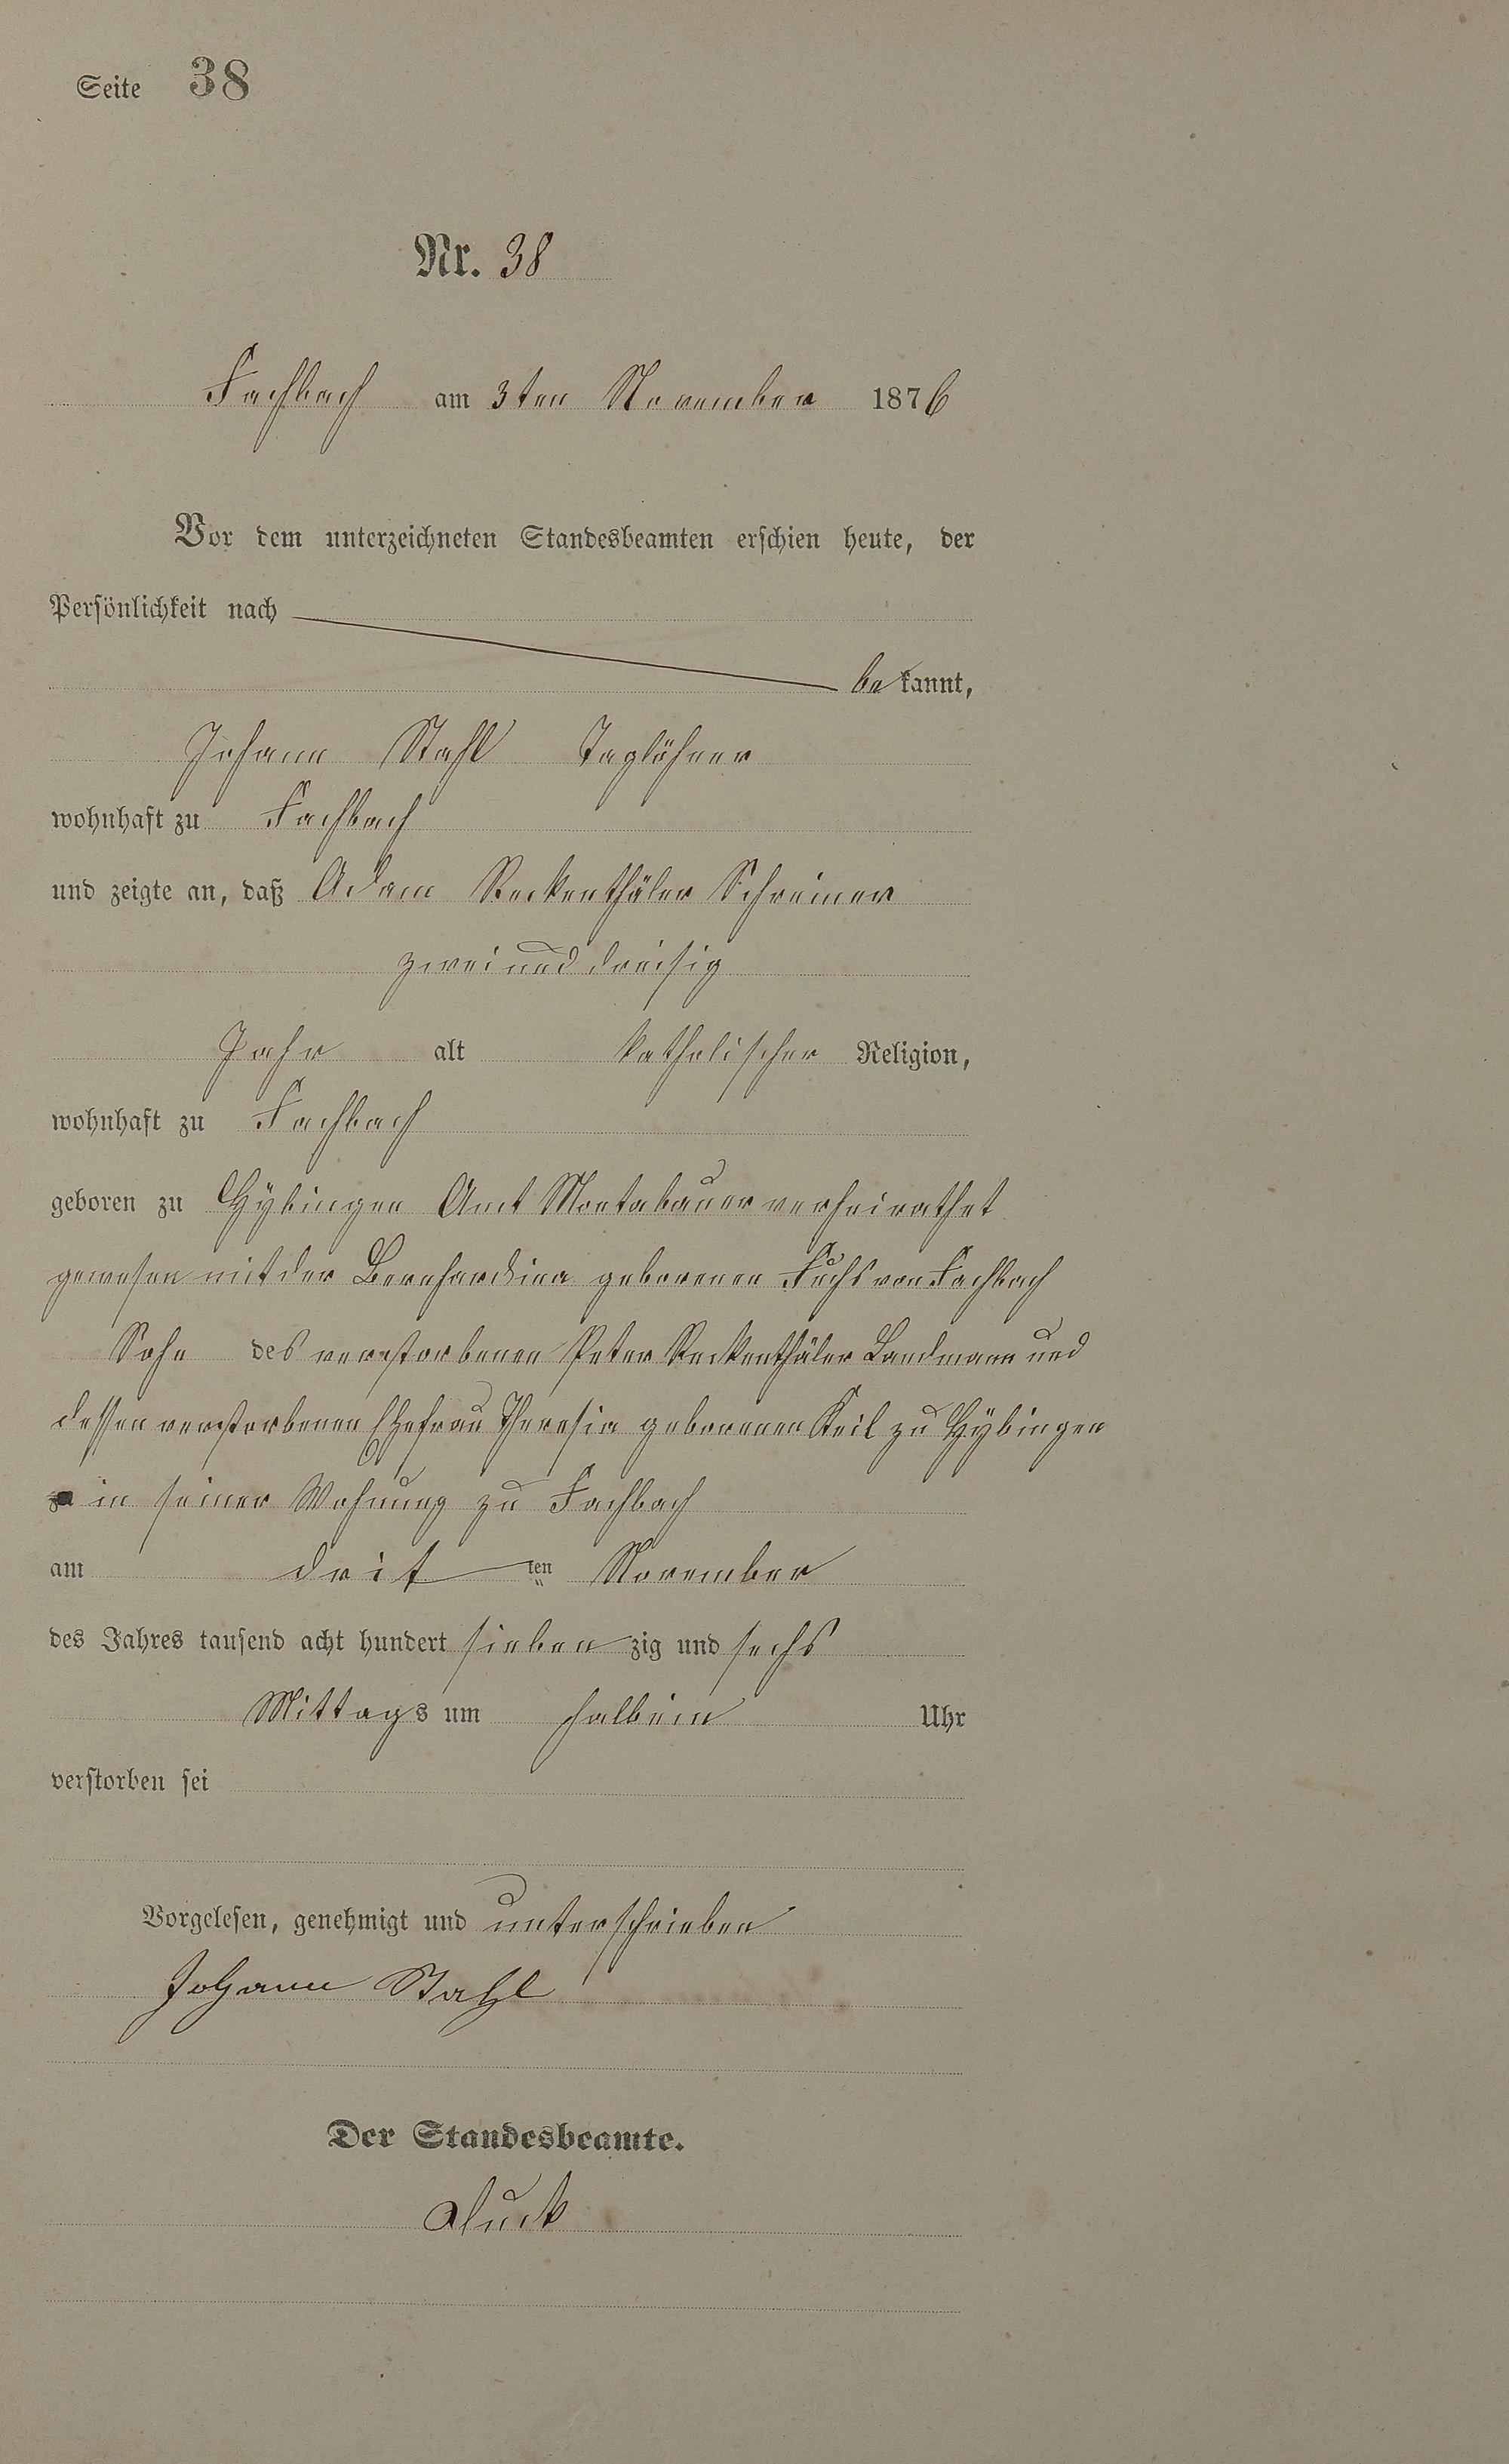 Seite 38
Nr. 38
Fachbach am 3ten November 1876
Vor dem unterzeichneten Standesbeamten erschien heute, der
Persönlichkeit nach
be kannt,
Johann Stahl Taglöhner
wohnhaft zu Fachbach
und zeigte an, daß Adam Reckenthäler Schreiner
zweiunddreisig
Jahr alt katholischer Religion,
wohnhaft zu Fachbach
geboren zu Hÿbingen Amt Montabauer verheirathet
gewesen mit der Bernhardina geborenen Fuchs von Fachbach
Sohn des verstorbenen Peter Reckenthäler Landmann und
dessen verstorbenen Ehefrau Theresia geborenen Keil zu Hÿbingen
in seiner Wohnung zu Fachbach
am drit ten November
des Jahres tausend acht hundert sieben zig und sechs
Mittags um halbein Uhr
verstorben sei
Vorgelesen, genehmigt und unterschrieben
Johann Stahl
Der Standesbeamte.